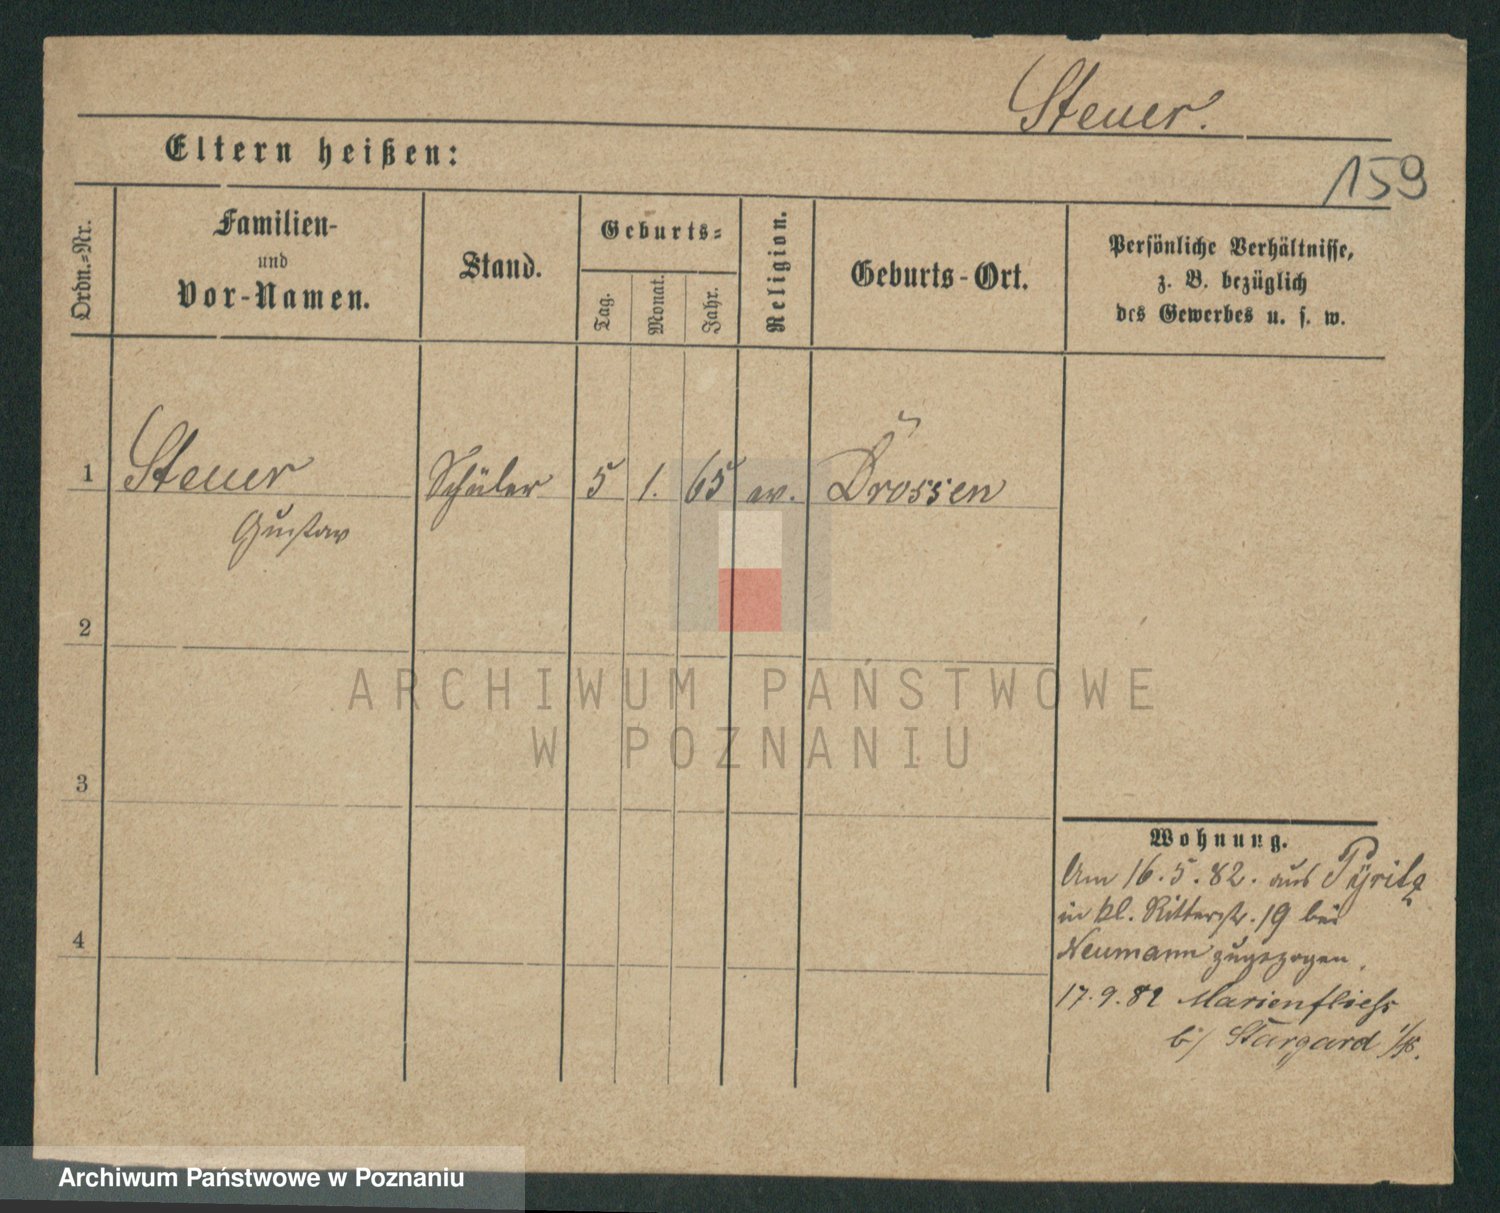 Steuer.
Eltern heißen:
159
Ordn.-Nr.
Familien-
und
Vor-Namen.
Stand.
Geburts-
Tag.
Monat.
Jahr.
Religion.
Geburts-Ort.
Persönliche Verhältnisse,
z. B. bezüglich
des Gewerbes u. s. w.
1 Steuer Schüler 5 1. 65 ev. Drossen
Gustav
2
3
4
Wohnung.
Am 16.5.82. aus Pyritz
in kl. Ritterstr. 19 bei
Neumann zugezogen.
17.9.82 Marienfliess
b/ Stargard i/P.
ARCHIWUM PAŃSTWOWE
W POZNANIU
Archiwum Państwowe w Poznaniu